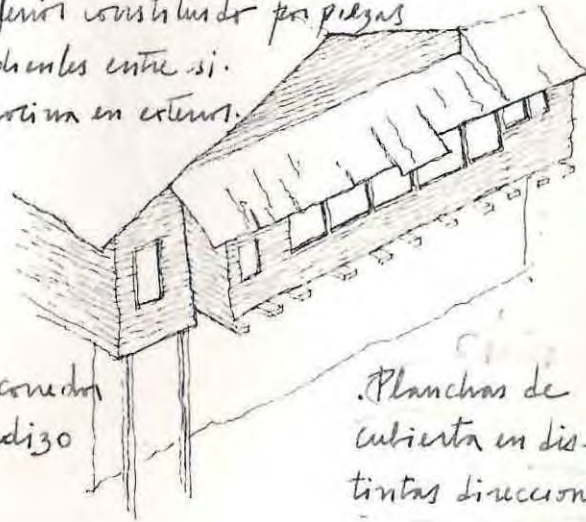 constituido por piezas
dientes entre si.
cocina en exterior.
corredor
dizo
.Planchas de
cubierta en dis-
tintas direccion